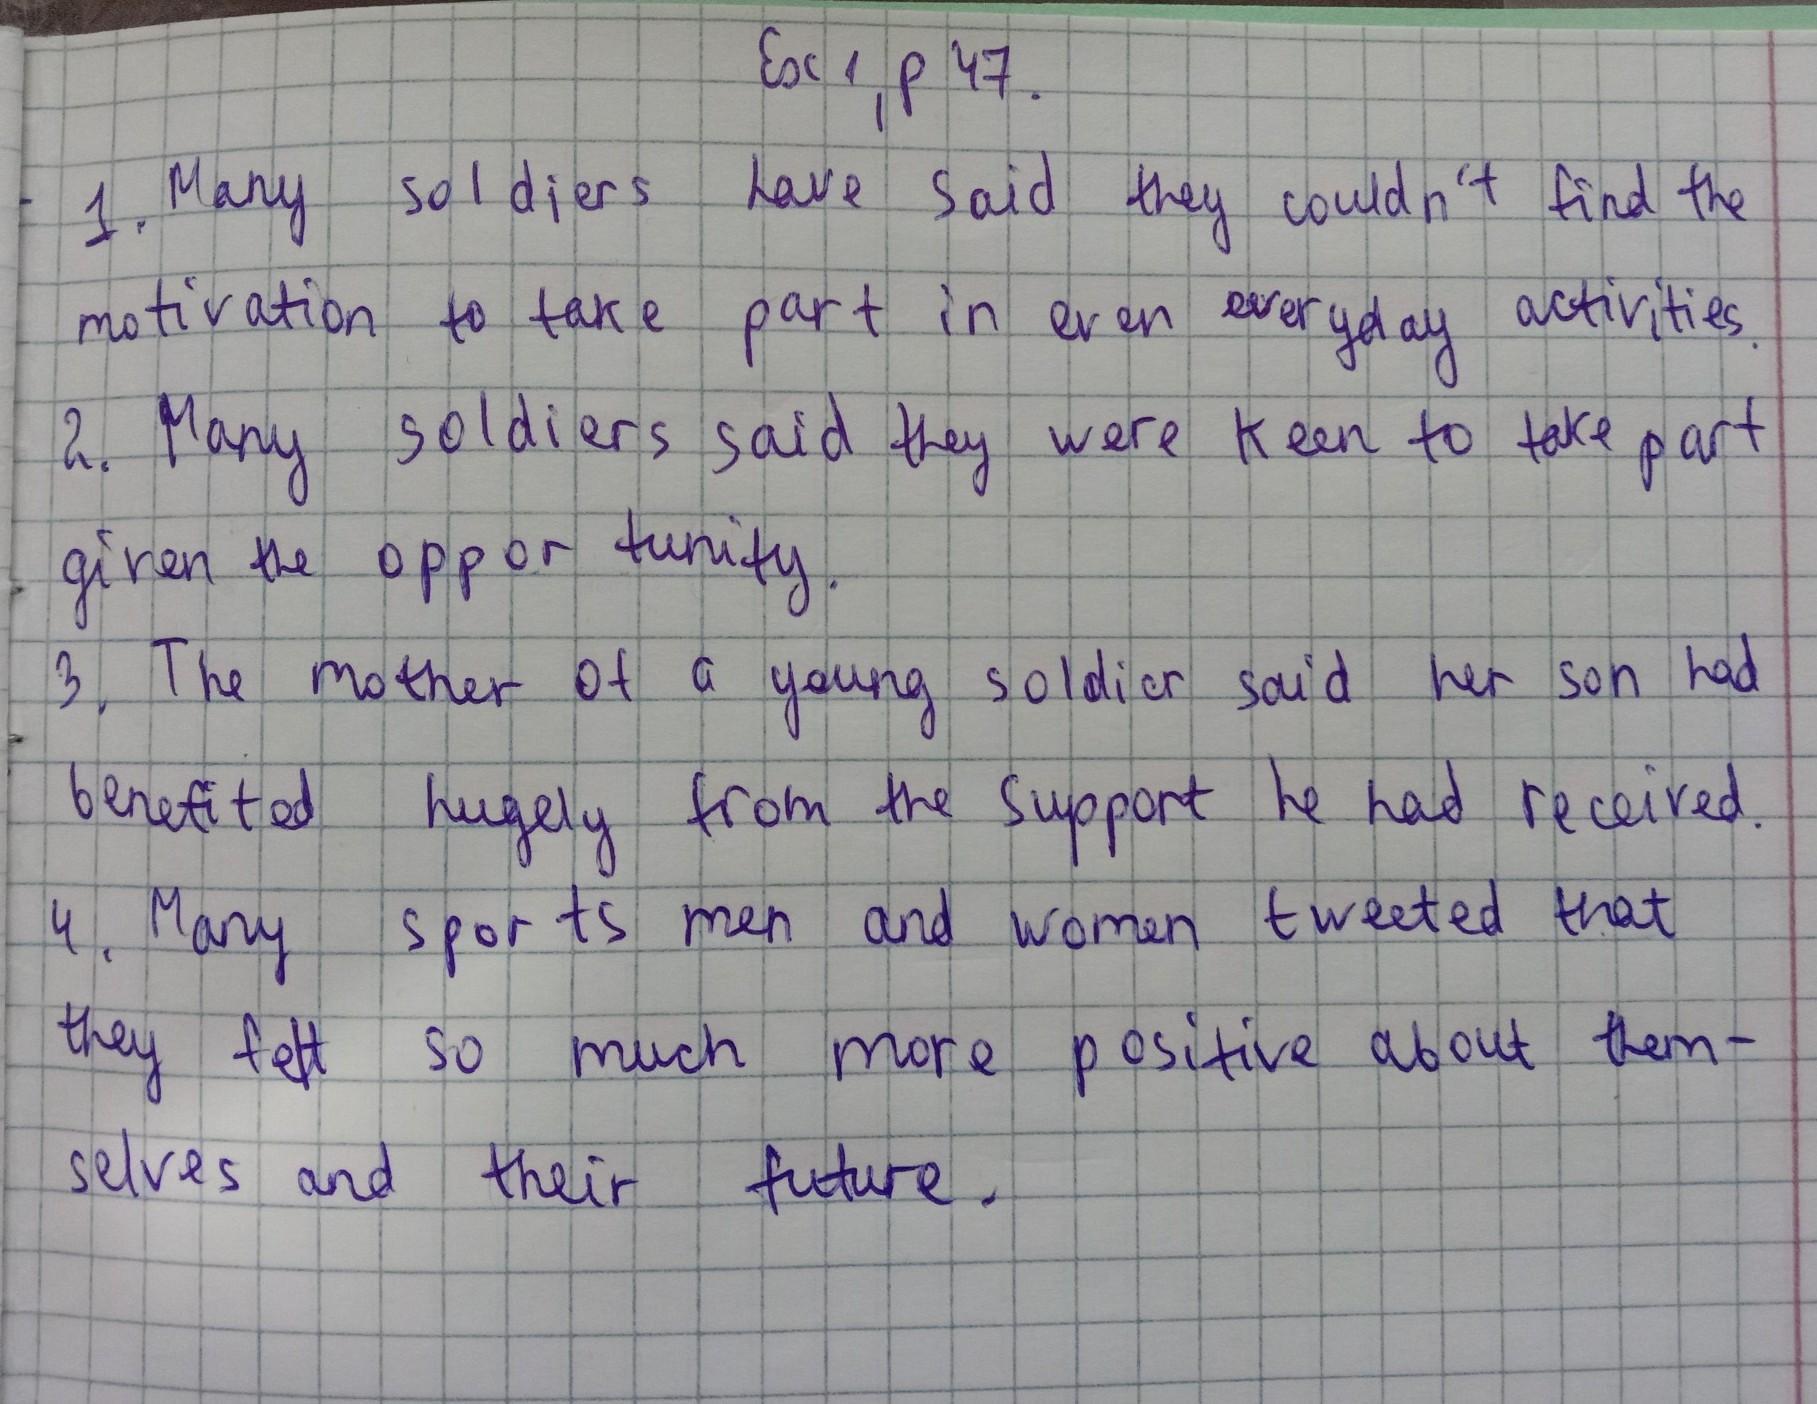 Ex 1, p 47.
1. Many soldiers have said they couldn't find the
motivation to take part in even everyday activities.
2. Many soldiers said they were keen to take part
given the opportunity.
3. The mother of a young soldier said her son had
benefited hugely from the support he had received.
4. Many sports men and women tweeted that
they felt so much more positive about them-
selves and their future.